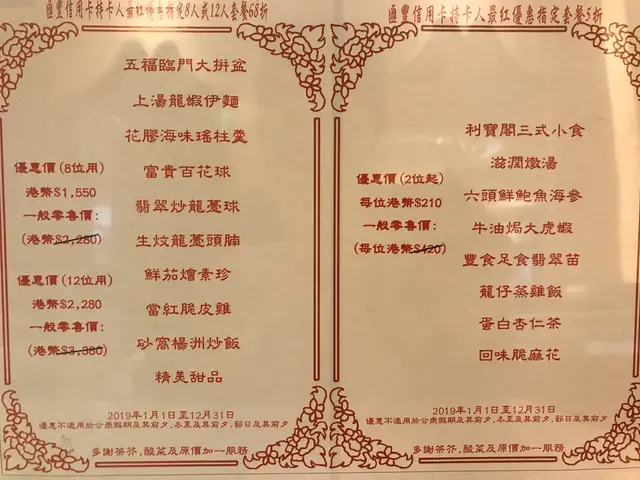 匯豐信用卡持卡人最紅優惠指定8人或12人套餐68折
五福臨門大拼盆
上湯龍蝦伊麵
花膠海味瑤柱羹
富貴百花球
翡翠炒龍躉球
生炆龍躉頭腩
鮮茄燴素珍
當紅脆皮雞
砂窩楊洲炒飯
精美甜品
優惠價(8位用)
港幣$1,550
一般零售價:
(港幣$2,280)
優惠價(12位用)
港幣$2,280
一般零售價:
(港幣$3,380)
2019年1月1日至12月31日
優惠不適用於公眾假期及其前夕,冬至及其前夕,節日及其前夕
多謝茶芥,酸菜及原價加一服務
匯豐信用卡持卡人最紅優惠指定套餐5折
利寶閣三式小食
滋潤燉湯
六頭鮮鮑魚海參
牛油焗大虎蝦
豐食足食翡翠苗
籠仔蒸雞飯
蛋白杏仁茶
回味脆麻花
優惠價(2位起)
每位港幣$210
一般零售價:
(每位港幣$420)
2019年1月1日至12月31日
優惠不適用於公眾假期及其前夕,冬至及其前夕,節日及其前夕
多謝茶芥,酸菜及原價加一服務